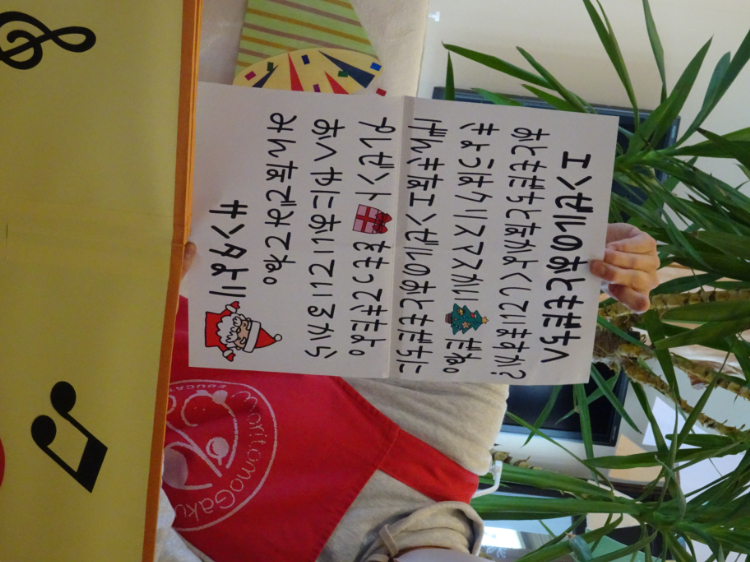 エンゼルのおともだちへ
おともだちとなかよくしていますか?
きょうはクリスマスかい だね。
げんきなエンゼルのおともだちに
プレゼント をもってきたよ。
おへやにおいているから
みんなでみてね。
サンタより
moritomoGaku
EDUCAT